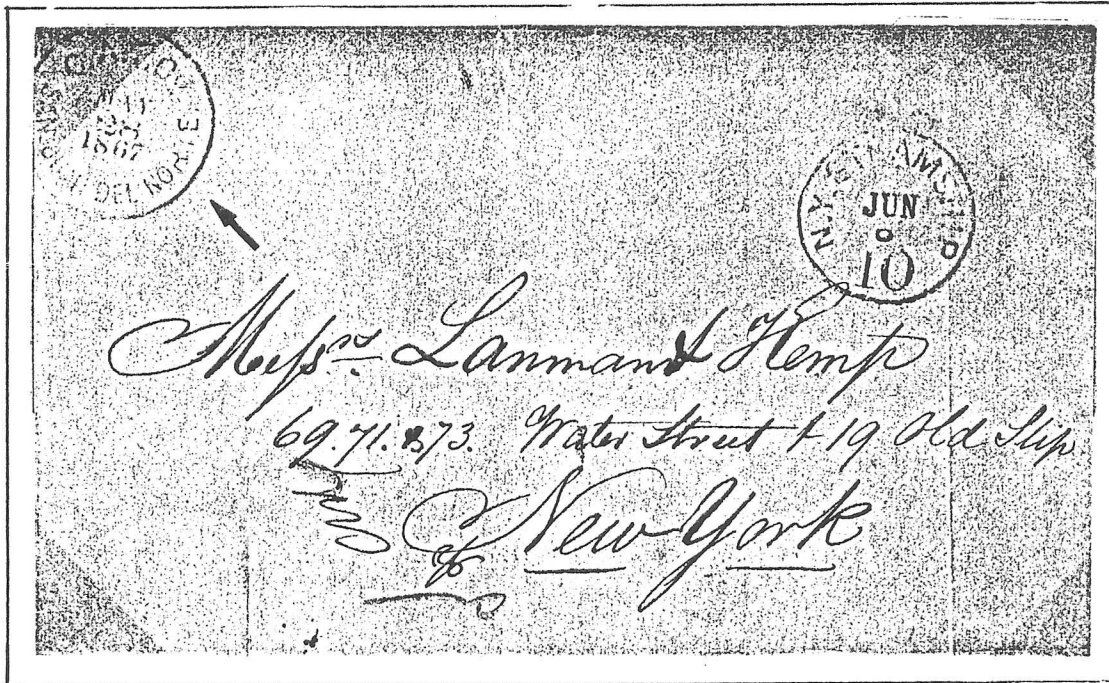 1867
DEL NORTE
N.Y. STEAMSHIP
JUN
10
Messrs. Lanman & Hemp
69. 71. & 73. Water Street & 19 Old Slip
New York